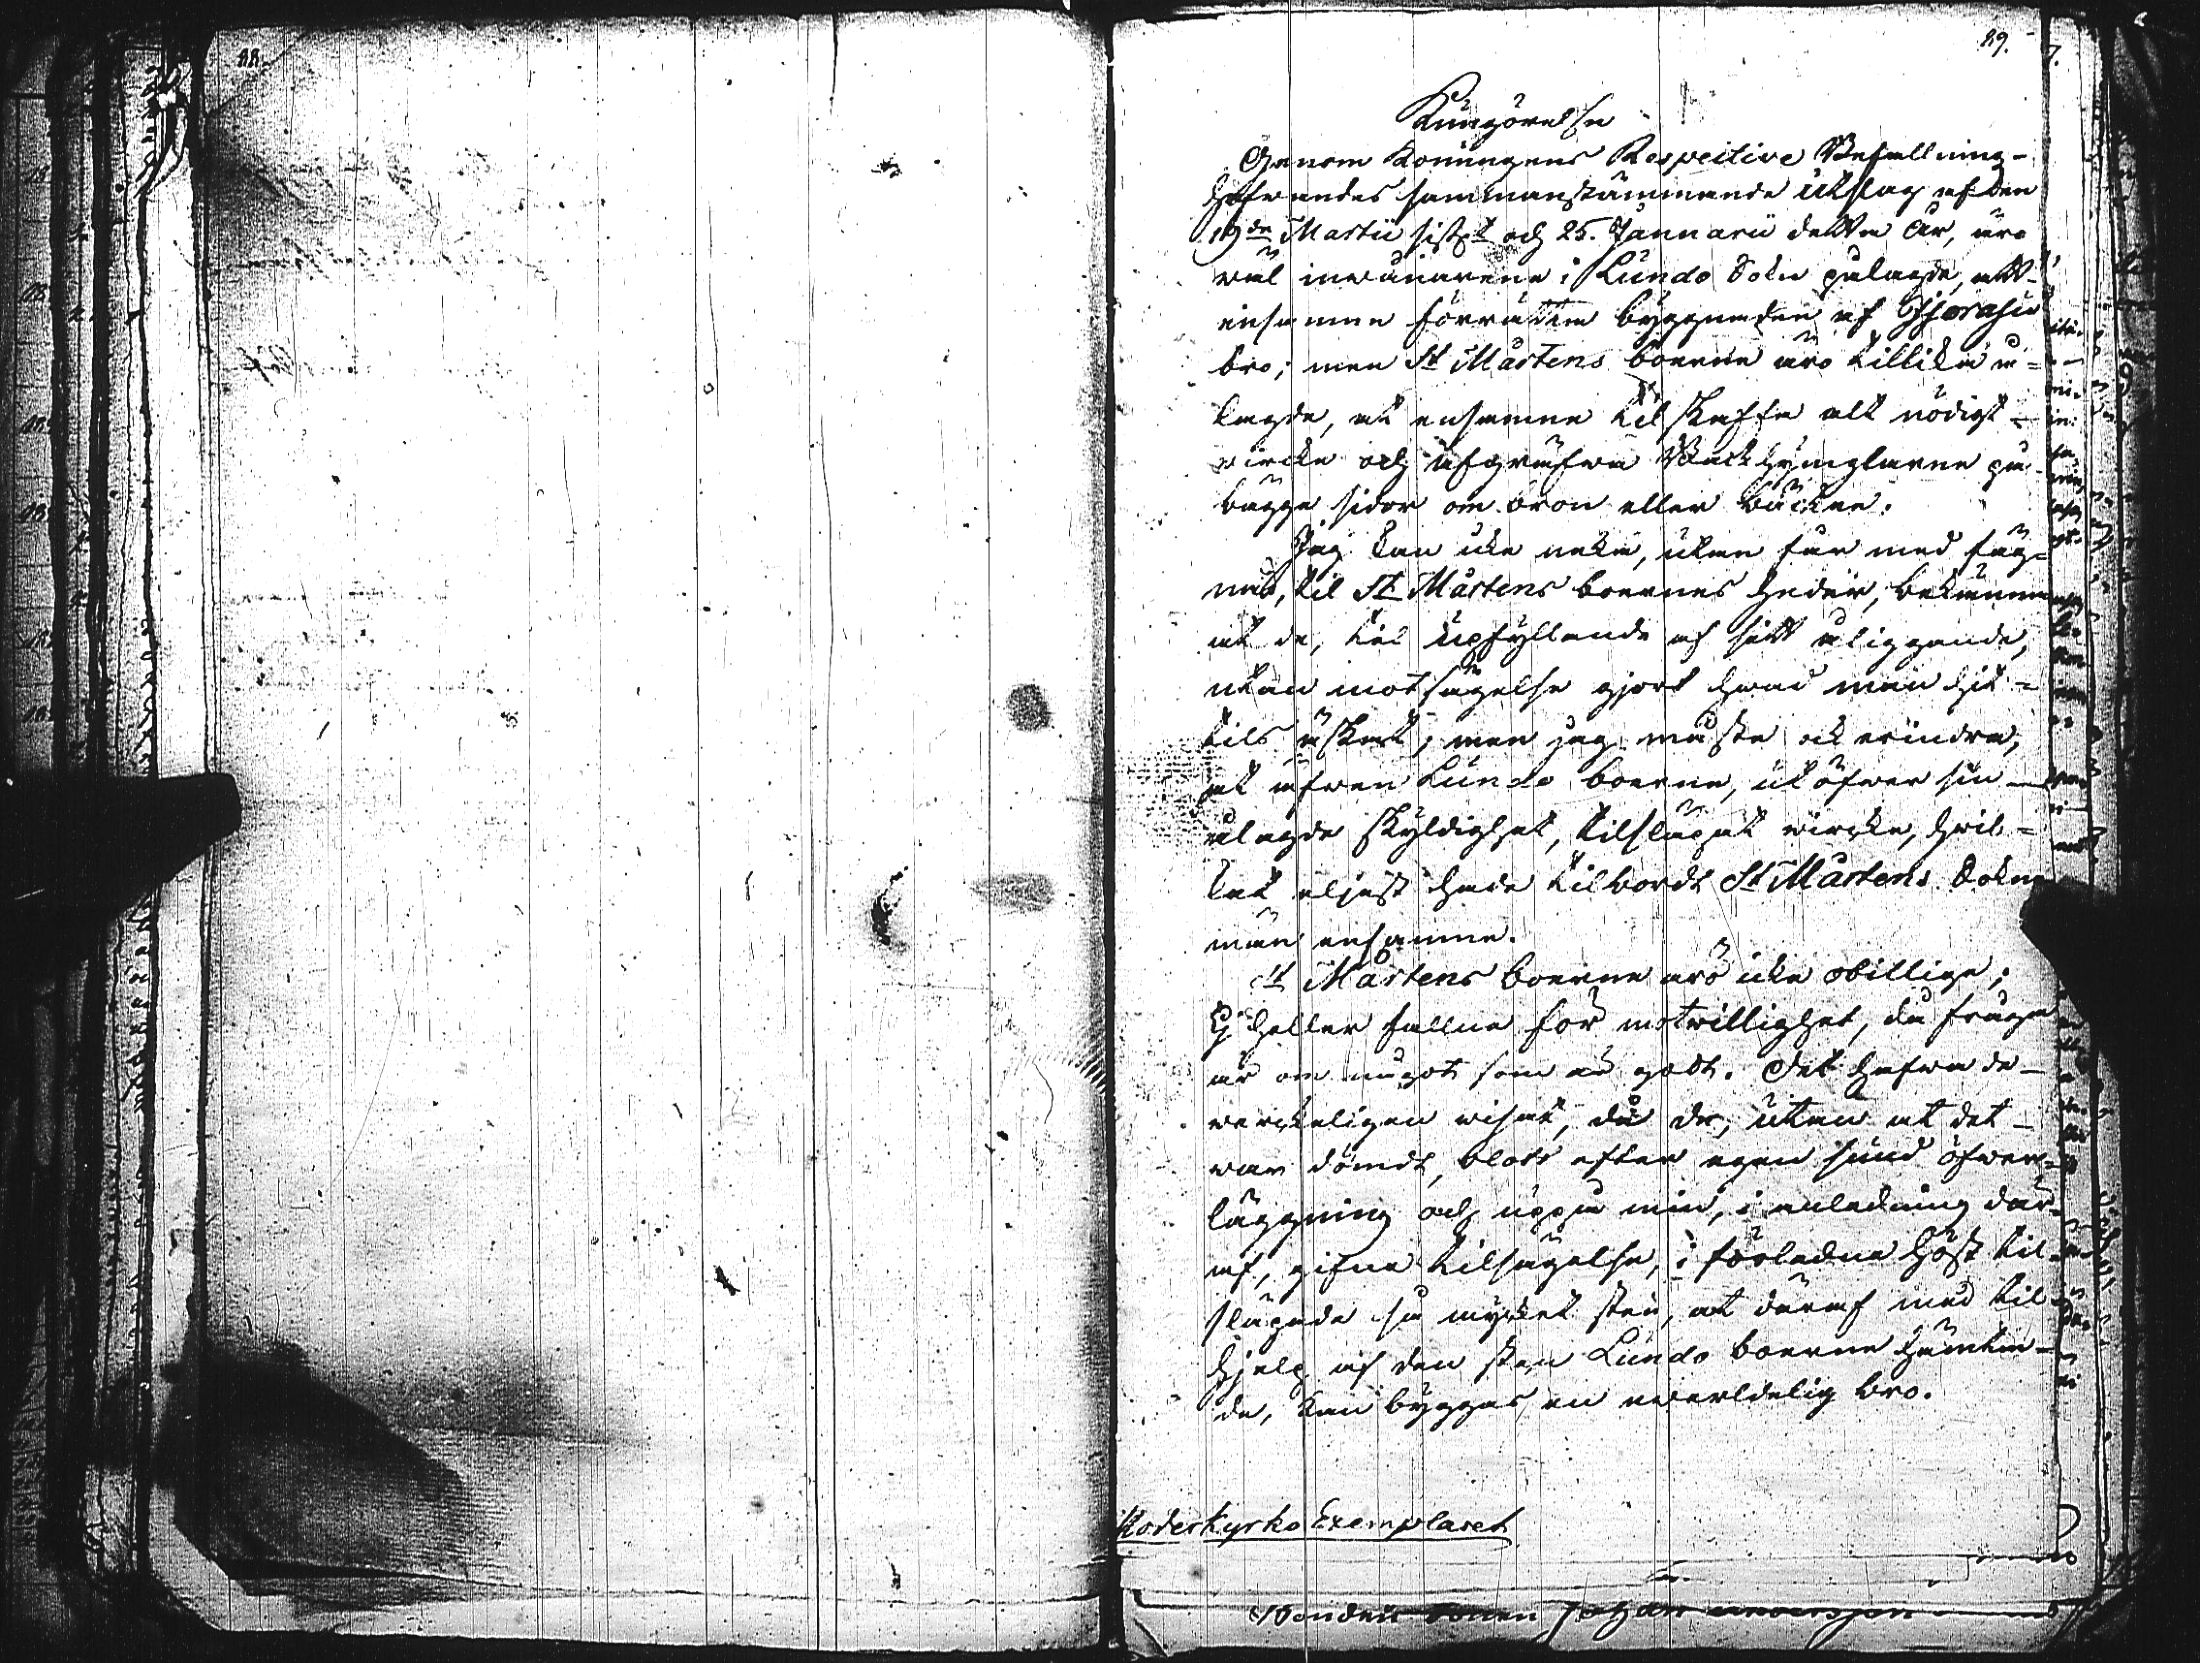 88.
89.
Kungörelse
Genom Konungens Respective Befallning-
hafvandes sammanstämmande utslag af den
19de Martii sistl. och 25. Januarii detta År, äro
väl invånarena i Lundo Sokn pålagde, att
ensamme förrätta byggnaden af
bro; men St Mårtens boerne äro tillika å-
lagde, at ensamne til skaffa alt nödigt
vircke och afgräfva Back hänglarne på
bägge sidor om bron eller bäcken.
Jag kan icke neka, utan får med fäg-
nad, til St Mårtens boernes heder, bekänna
at de, til upfyllande af sitt åliggande,
utan motsägelse gjort hvad man hit-
tils äskat; men jag måste ock erindra,
at äfven Lundo boerne, utöfver sin
ålagde skyldighet, tilsläpat virke, hvil-
ket eljest hade tilhördt St Mårtens Sokne
män ensamne.
St Mårtens boerne äro icke obillige;
Ej heller fallne för motvillighet, då fråga
är om något som är godt. Det hafva de
verkeligen visat, då de, utan at det
var dömdt, blott efter egen sund öfver-
läggning och uppå min, i anledning där-
af, gifna tilsägelse, i förledne höst til-
släpade så mycket sten, at däraf med til-
hjelp af den sten Lundo boerne hämta-
de, kan byggas en evärdelig bro.
Moderkyrko Exemplaret
Bonden Sonen Johan Andersson